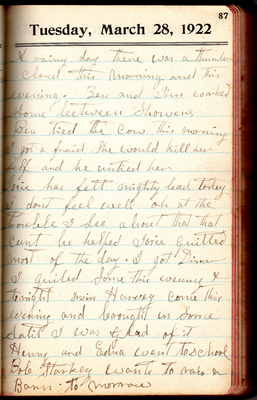 87
Tuesday, March 28, 1922
A rainy day there was a thunder
cloud this morning and this
evening. Ben and Jim worked
some between Showers
Ben tied the Cow this morning
I got a fraid She would kill her
self and he untied her
has felt mighty bad today
I dont feel well oh at the
trouble I See about that that
cant be helped Josie quilted
most of the day. I got Dinner
I quilted Some this evening &
tonight Harvey Come this
evening and brought in Some
I was glad of it
Henry and Edna went to School
Bob Starkey wants to rais a
Barn to morrow